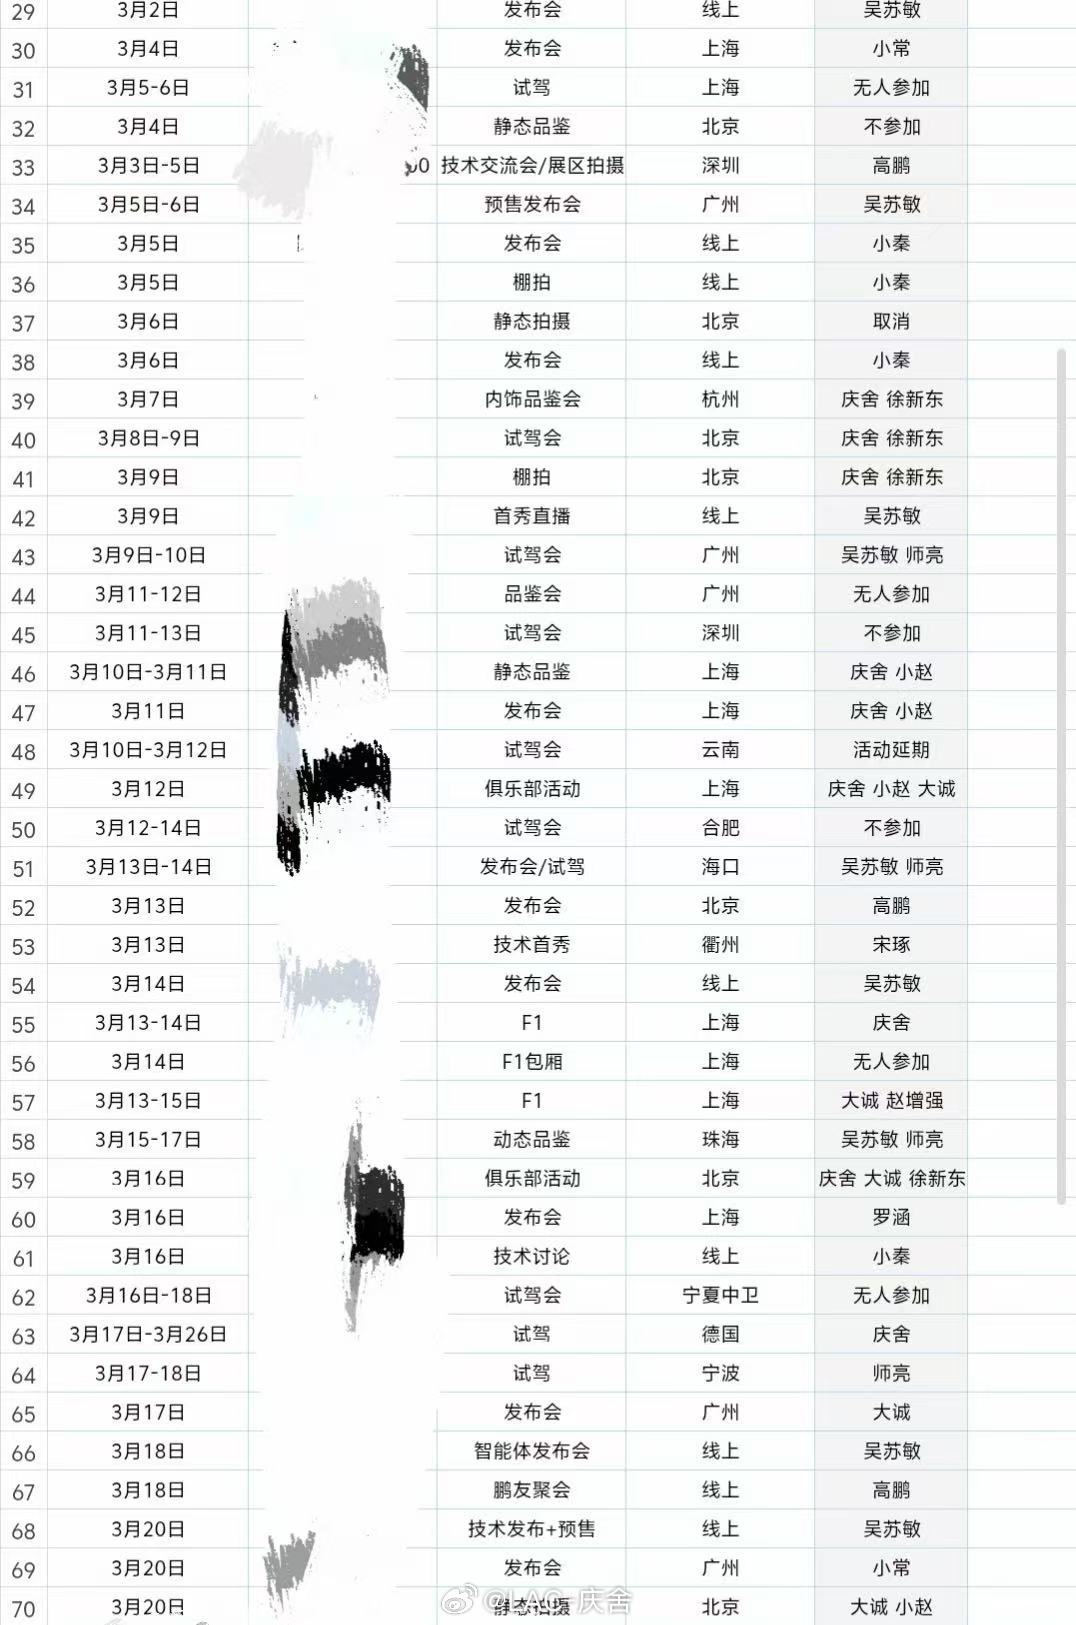 29 3月2日 发布会 线上 吴苏敏
30 3月4日 发布会 上海 小常
31 3月5-6日 试驾 上海 无人参加
32 3月4日 静态品鉴 北京 不参加
33 3月3日-5日 00 技术交流会/展区拍摄 深圳 高鹏
34 3月5日-6日 预售发布会 广州 吴苏敏
35 3月5日 发布会 线上 小秦
36 3月5日 棚拍 线上 小秦
37 3月6日 静态拍摄 北京 取消
38 3月6日 发布会 线上 小秦
39 3月7日 内饰品鉴会 杭州 庆舍 徐新东
40 3月8日-9日 试驾会 北京 庆舍 徐新东
41 3月9日 棚拍 北京 庆舍 徐新东
42 3月9日 首秀直播 线上 吴苏敏
43 3月9日-10日 试驾会 广州 吴苏敏 师亮
44 3月11-12日 品鉴会 广州 无人参加
45 3月11-13日 试驾会 深圳 不参加
46 3月10日-3月11日 静态品鉴 上海 庆舍 小赵
47 3月11日 发布会 上海 庆舍 小赵
48 3月10日-3月12日 试驾会 云南 活动延期
49 3月12日 俱乐部活动 上海 庆舍 小赵 大诚
50 3月12-14日 试驾会 合肥 不参加
51 3月13日-14日 发布会/试驾 海口 吴苏敏 师亮
52 3月13日 发布会 北京 高鹏
53 3月13日 技术首秀 衢州 宋琢
54 3月14日 发布会 线上 吴苏敏
55 3月13-14日 F1 上海 庆舍
56 3月14日 F1包厢 上海 无人参加
57 3月13-15日 F1 上海 大诚 赵增强
58 3月15-17日 动态品鉴 珠海 吴苏敏 师亮
59 3月16日 俱乐部活动 北京 庆舍 大诚 徐新东
60 3月16日 发布会 上海 罗涵
61 3月16日 技术讨论 线上 小秦
62 3月16日-18日 试驾会 宁夏中卫 无人参加
63 3月17日-3月26日 试驾 德国 庆舍
64 3月17-18日 试驾 宁波 师亮
65 3月17日 发布会 广州 大诚
66 3月18日 智能体发布会 线上 吴苏敏
67 3月18日 鹏友聚会 线上 高鹏
68 3月20日 技术发布+预售 线上 吴苏敏
69 3月20日 发布会 广州 小常
70 3月20日 静态拍摄 北京 大诚 小赵
@LAO-庆舍